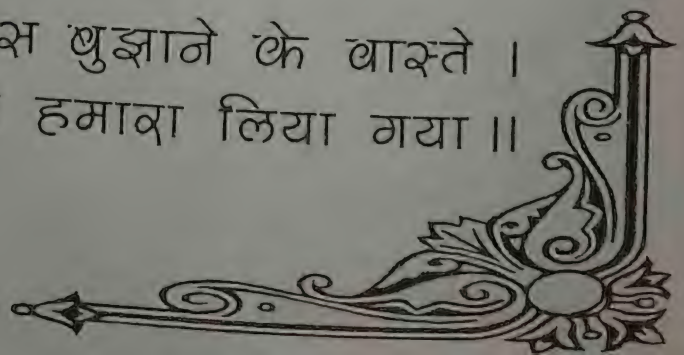 बुझाने के वास्ते ।
हमारा लिया गया ॥